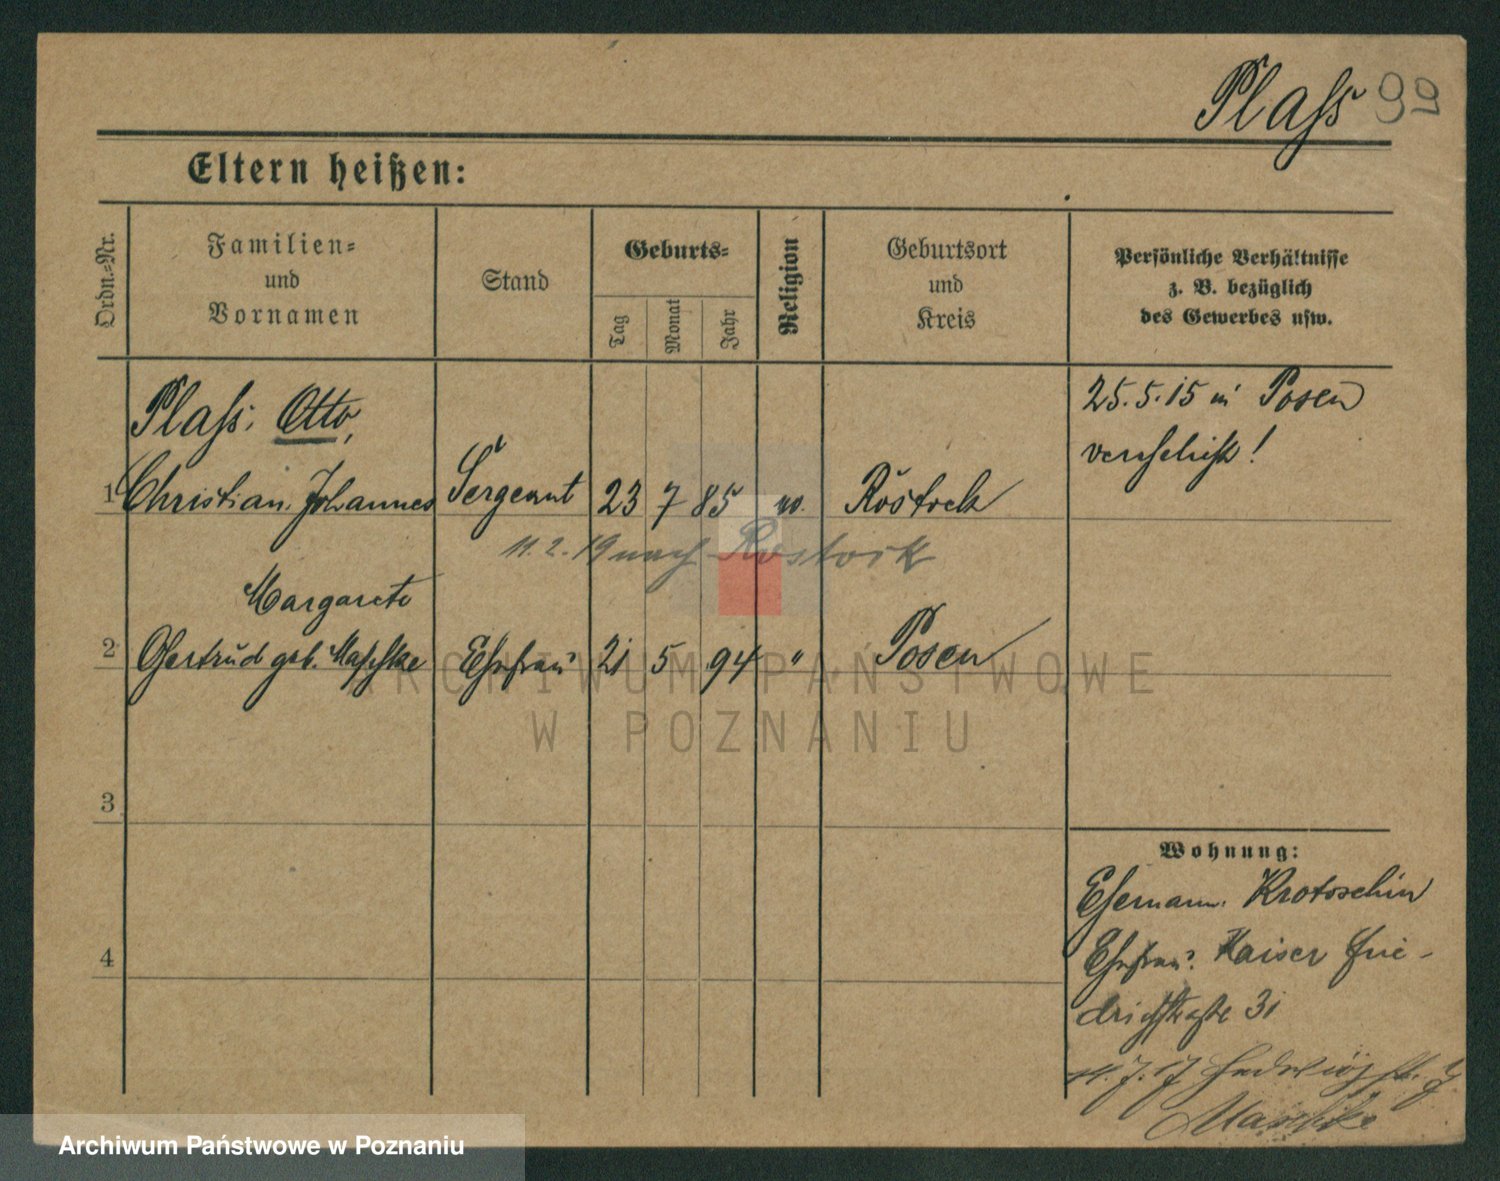 Plaſs 99
Eltern heißen:
Ordn.=Nr.
Familien=
und
Vornamen
Stand
Geburts=
Tag
Monat
Jahr
Religion
Geburtsort
und
Kreis
Persönliche Verhältnisse
z. B. bezüglich
des Gewerbes usw.
Plaſs, Otto,
1 Christian Johannes Sergeant 23 7 85 Rostock
25.5.15 in Posen
verehelicht!
11.2.19 nach Rostock
Margarete
2 Gertrud geb. Maschke Ehefrau 21 5 94 " Posen
3
4
Wohnung:
Ehemann. Krotoschin
Ehefrau. Kaiser Frie-
drichstraße 31
11.7.17 Hedwigstr.
Maschke
ARCHIWUM PAŃSTWOWE
W POZNANIU
Archiwum Państwowe w Poznaniu